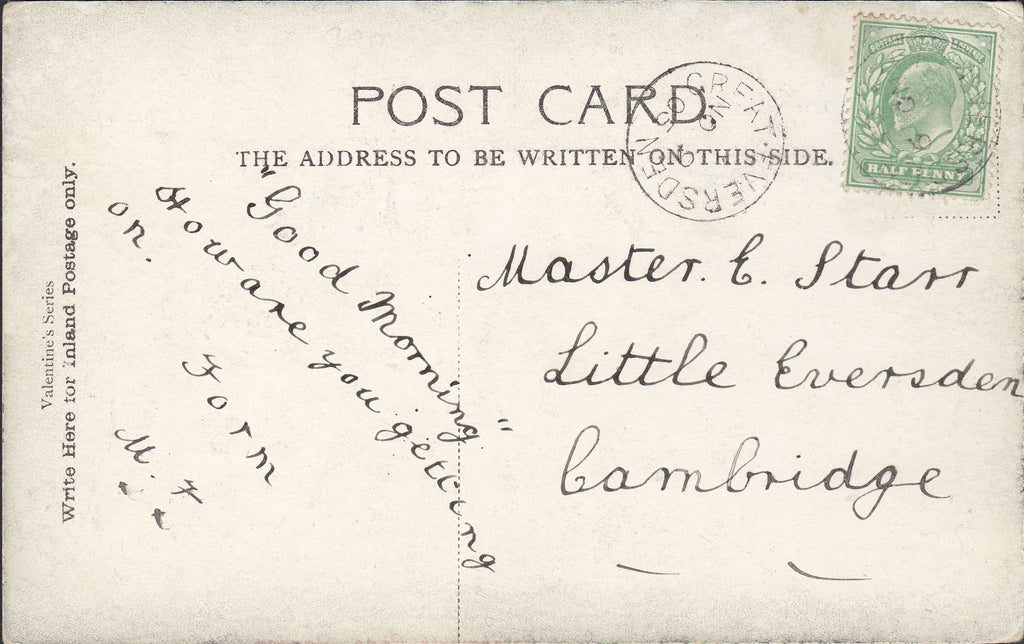 POST CARD.
THE ADDRESS TO BE WRITTEN ON THIS SIDE.
GREAT EVERSDEN
POSTAGE REVENUE
HALF PENNY
Valentine's Series
Write Here for Inland Postage only.
"Good Morning"
How are you getting
on.
Form
M. F.
Master. E. Starr
Little Eversden
Cambridge